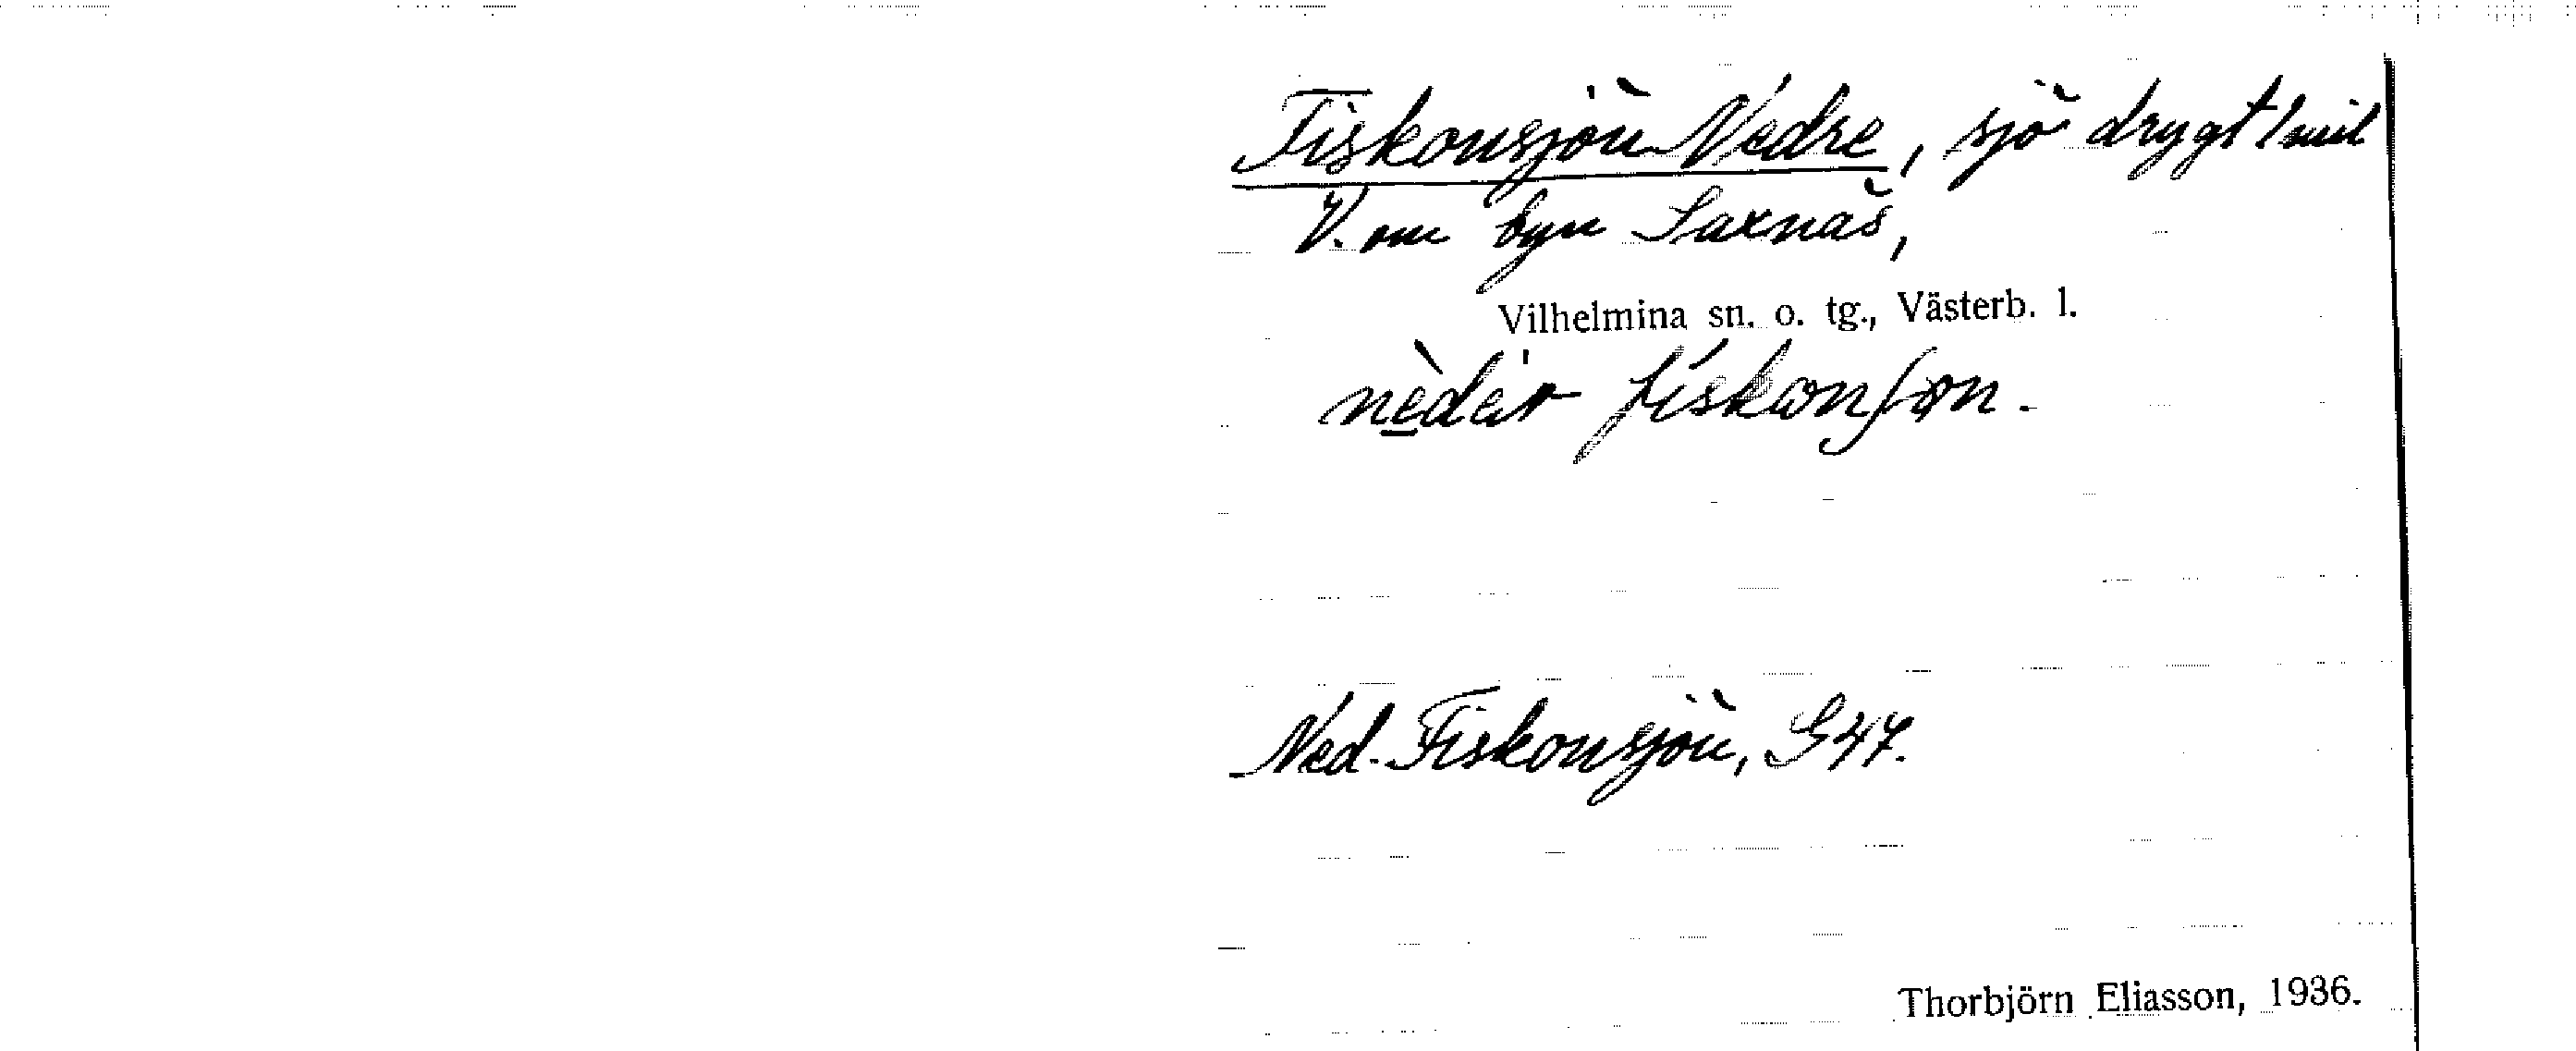 Fiskonsjön Nedre, sjö drygt 1 mil
V. om byn Saxnäs,
Vilhelmina sn. o. tg., Västerb. l.
nèder fiskonʃøn.
Ned. Fiskonsjön, G47.
Thorbjörn Eliasson, 1936.